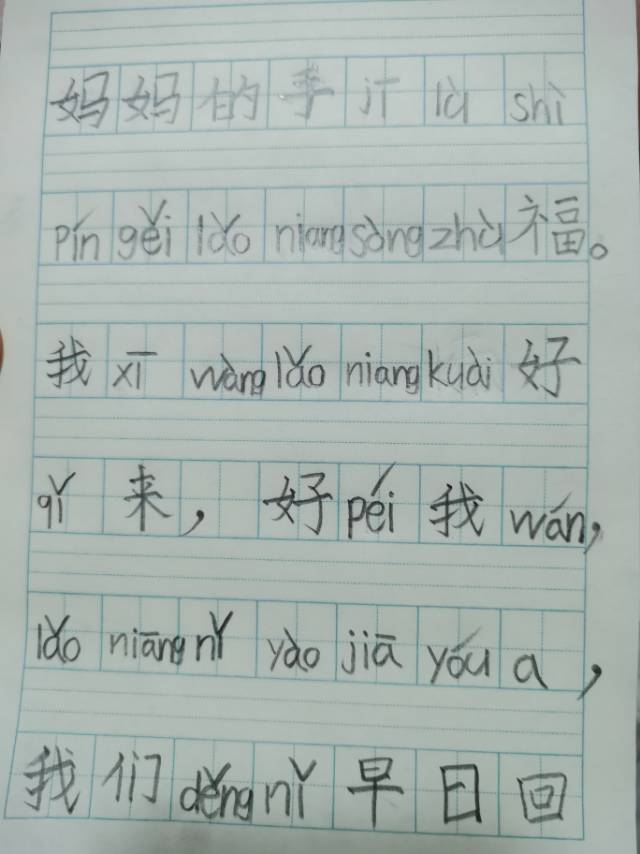 妈妈的手jī là shì
pín gěi lǎo niang sòng zhù福。
我xī wàng lǎo niang kuài好
qǐ来，好péi我wán,
lǎo niāng nǐ yào jiā yóu a，
我们děng nǐ早日回